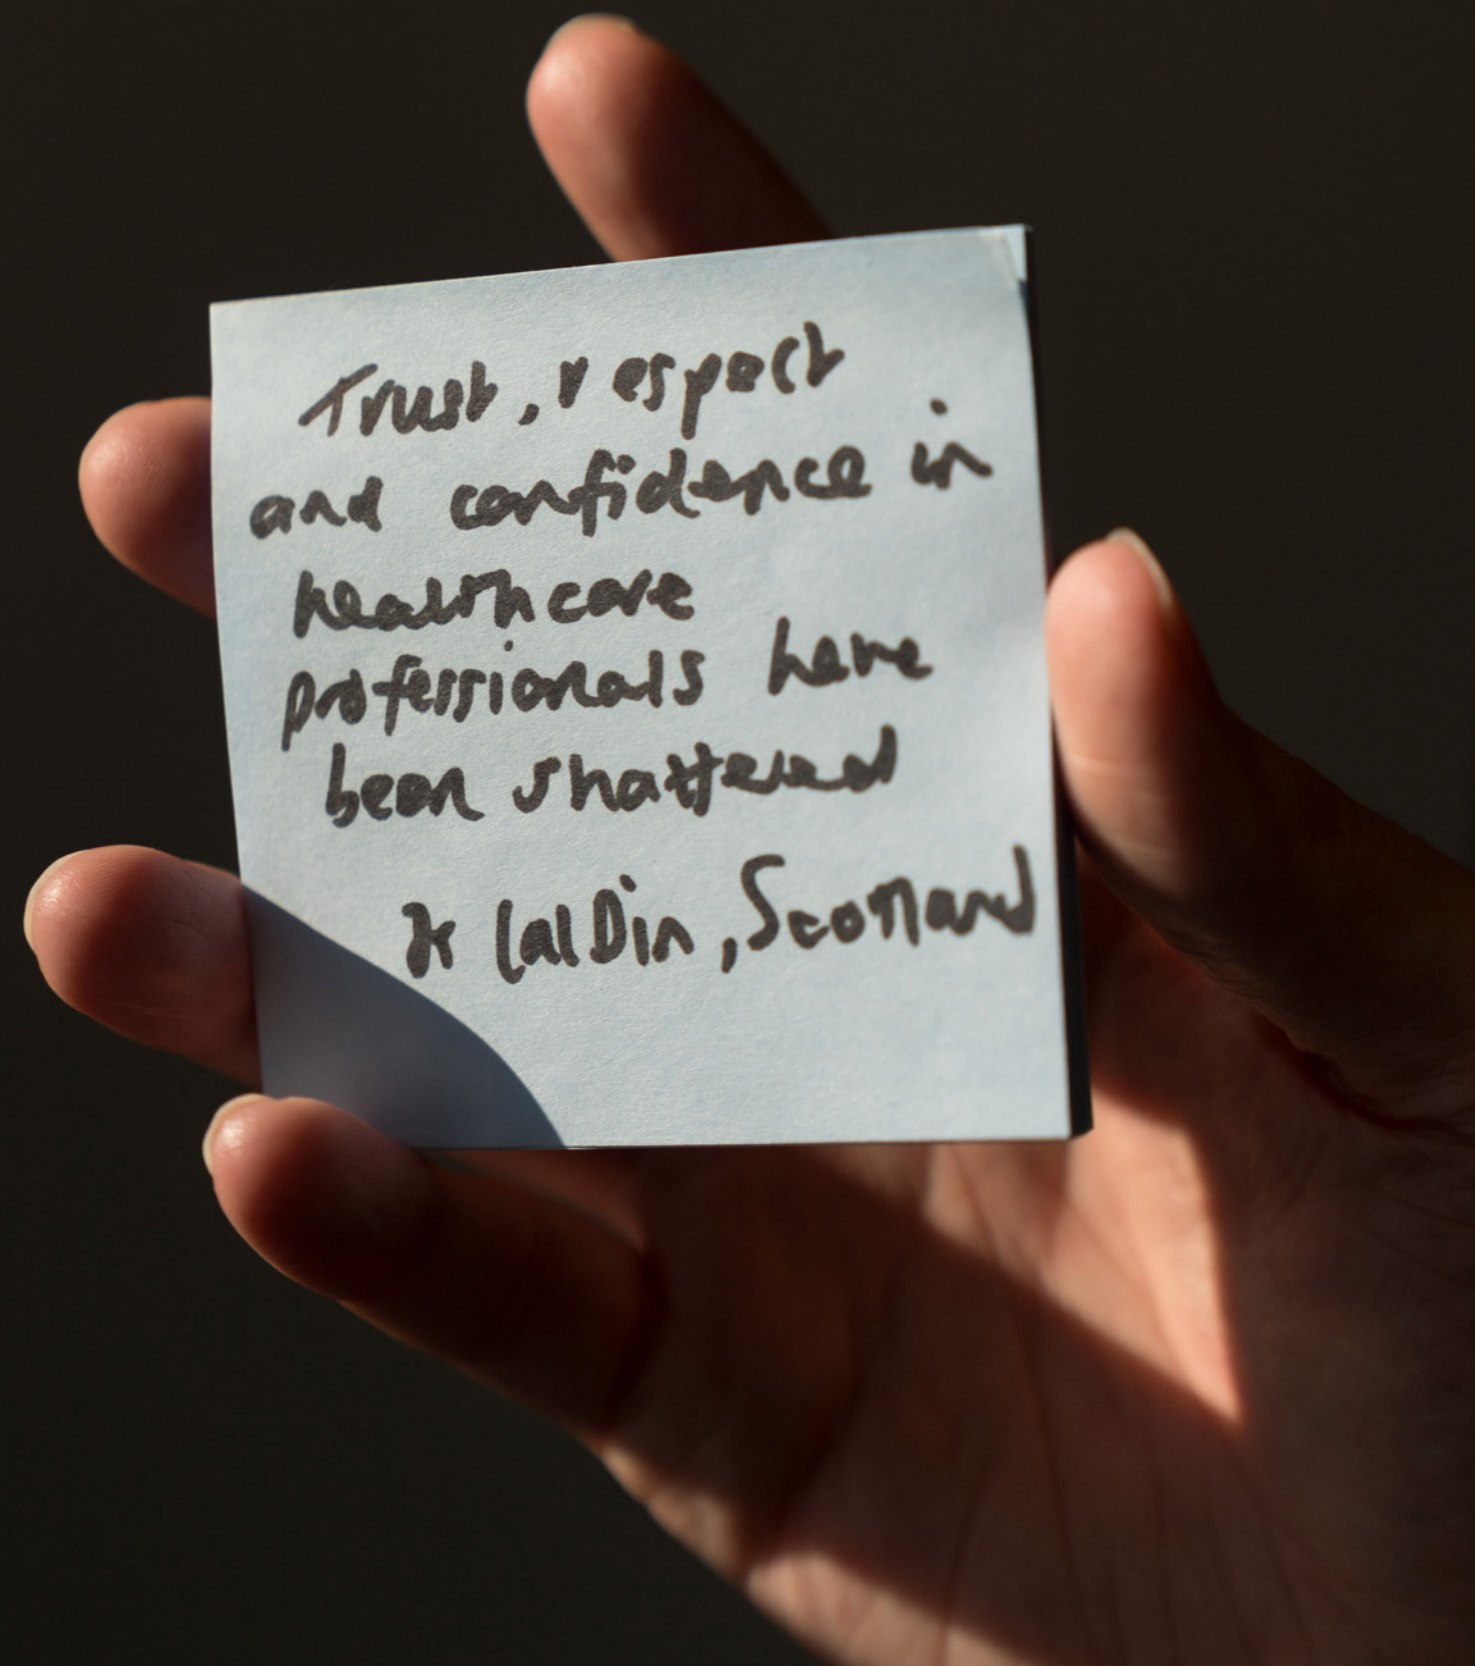 Trust, respect
and confidence in
healthcare
professionals have
been shattered
LalDin, Scotland